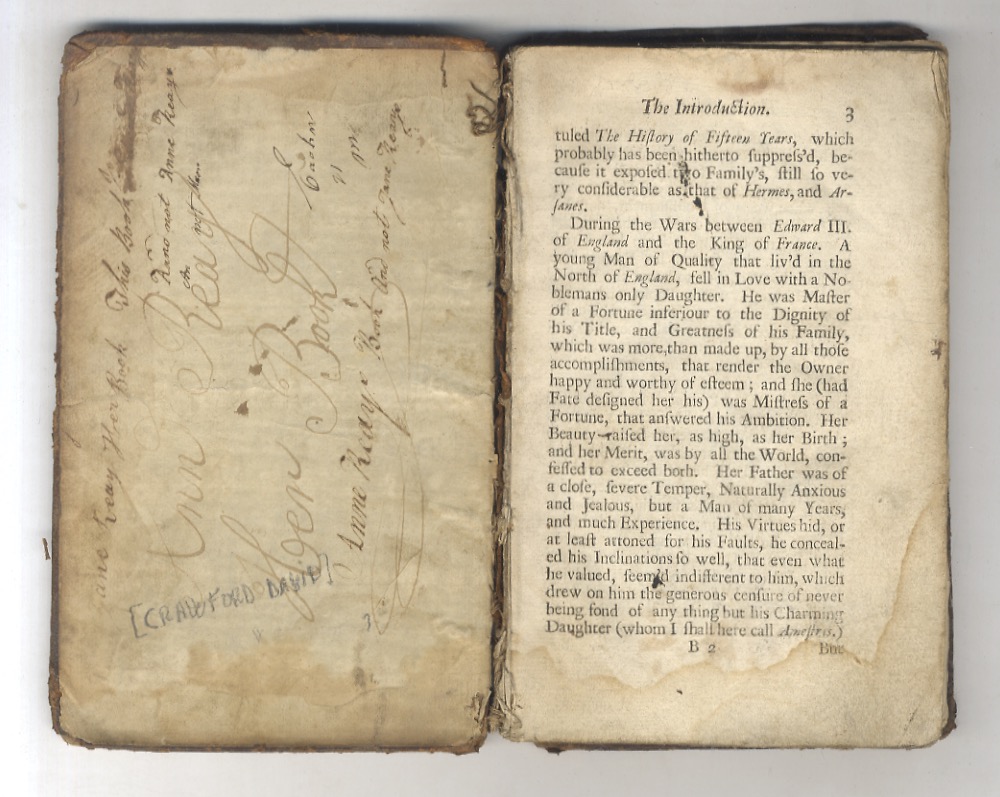 Jane Keay Her Book This Book
Keay not Anne Keay
not
Ann Keay
Her Book
Anne Keay Book and not Jane Keay
[CRAWFORD DAVID]
3
The Introduction. 3
tuled The Hiſtory of Fifteen Years, which
probably has been hitherto ſuppreſs'd, be-
cauſe it expoſed two Family's, ſtill ſo ve-
ry conſiderable as that of Hermes, and Ar-
ſanes.
During the Wars between Edward III.
of England and the King of France. A
young Man of Quality that liv'd in the
North of England, fell in Love with a No-
blemans only Daughter. He was Maſter
of a Fortune inferiour to the Dignity of
his Title, and Greatneſs of his Family,
which was more, than made up, by all thoſe
accompliſhments, that render the Owner
happy and worthy of eſteem ; and ſhe (had
Fate deſigned her his) was Miſtreſs of a
Fortune, that anſwered his Ambition. Her
Beauty raiſed her, as high, as her Birth ;
and her Merit, was by all the World, con-
feſſed to exceed both. Her Father was of
a cloſe, ſevere Temper, Naturally Anxious
and Jealous, but a Man of many Years,
and much Experience. His Virtues hid, or
at leaſt attoned for his Faults, he conceal-
ed his Inclinations ſo well, that even what
he valued, ſeem'd indifferent to him, which
drew on him the generous cenſure of never
being fond of any thing but his Charming
Daughter (whom I ſhall here call Ameſtris.)
B 2 But